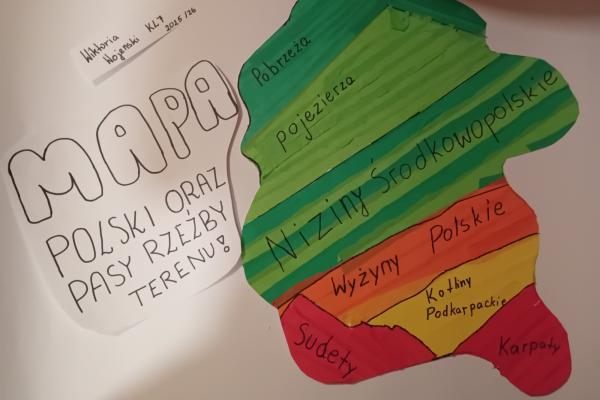 Wiktoria KL7
Wojenski 2025/26
MAPA
POLSKI ORAZ
PASY RZEŹBY
TERENU!
Pobrzeża
pojezierza
Niziny Środkowopolskie
Wyżyny Polskie
Kotliny
Podkarpackie
Sudety
Karpaty